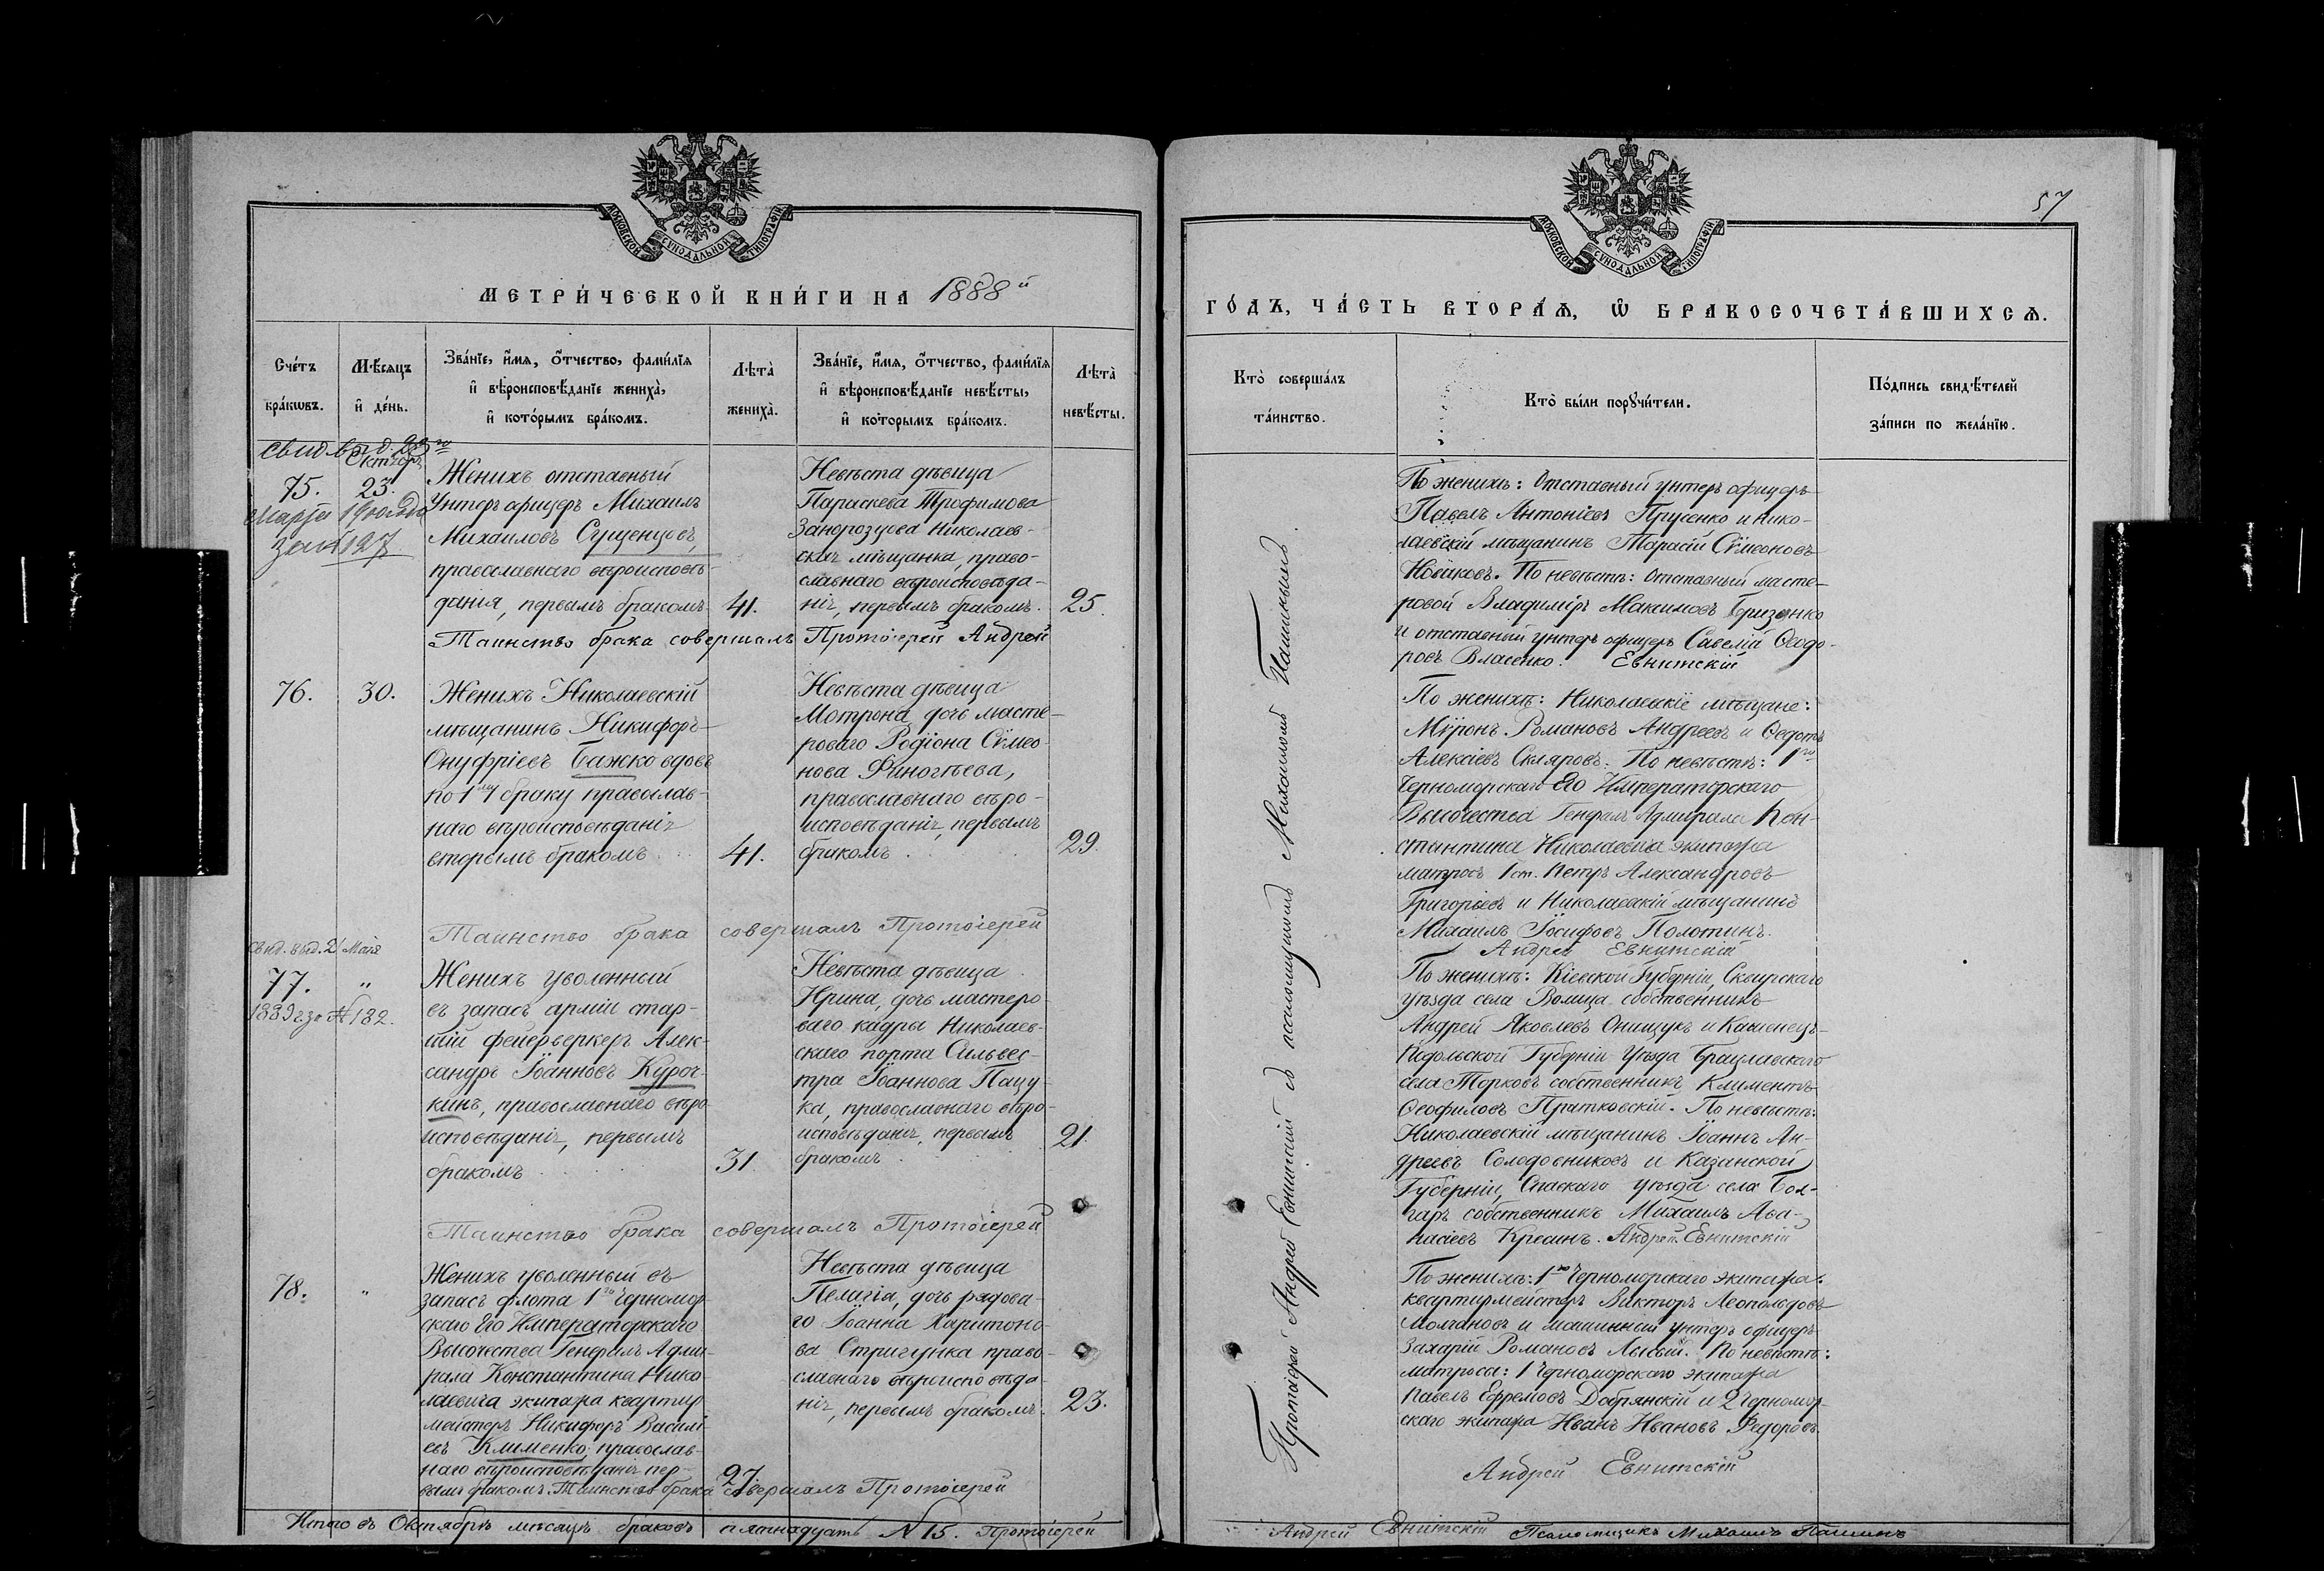 МОСКОВСКОЙ СУНОДАЛЬНОЙ ТИПОГРАФІИ
МЕТРИ́ЧЕСКОЙ КНИ́ГИ НА 1888й
Сче́тъ бра́кѡвъ.
Мѣ́сяцъ и҆ де́нь.
Зва́нїе, и҆́мя, ѻ҆́тчество, фами́лїя
и҆ вѣ̀роисповѣ́данїе жениха̀,
и҆ кото́рымъ бра́комъ.
Лѣта̀ жениха̀.
Зва́нїе, и҆́мя, ѻ҆́тчество, фами́лїя
и҆ вѣ̀роисповѣ́данїе невѣ́сты,
и҆ кото́рымъ бра́комъ.
Лѣта̀ невѣ́сты.
свид. выд. 23го
Октяб.
75.
23.
Марта 19
за № 127
Женихъ отставный
Унтеръ офицеръ Михаилъ
Михаиловъ Сущенцовъ,
православнаго вѣроисповѣ-
данія, первымъ бракомъ
41.
Невѣста дѣвица
Параскева Трофимова
Николаев-
ская мѣщанка, право-
славнаго вѣроисповѣда-
нія, первымъ бракомъ.
25.
Таинство брака совершалъ Протоіерей Андрей
76.
30.
Женихъ Николаевскій
мѣщанинъ Никифоръ
Онуфріевъ Бажко вдовъ
по 1му браку православ-
наго вѣроисповѣданія
вторымъ бракомъ
41.
Невѣста дѣвица
Мотрона, дочь масте-
роваго Родіона Сѵмео-
нова Финогѣева,
православнаго вѣро-
исповѣданія, первымъ
бракомъ
29.
Таинство брака совершалъ Протоіерей
Свид. выд. 21 Мая
77.
"
1889 г. за № 182.
Женихъ уволенный
въ запасъ арміи стар-
шій фейерверкеръ Алек-
сандръ Іоанновъ Куроч-
кинъ, православнаго вѣро-
исповѣданія, первымъ
бракомъ
31.
Невѣста дѣвица
Ирина, дочь мастеро-
ваго кадры Николаев-
скаго порта Сильвес-
тра Іоаннова Пацу-
ка, православнаго вѣро-
исповѣданія, первымъ
бракомъ
21.
Таинство брака совершалъ Протоіерей
78.
"
Женихъ уволенный въ
запасъ флота 1го Черномор-
скаго Его Императорскаго
Высочества Генералъ Адми-
рала Константина Нико-
лаевича экипажа квартир-
мейстеръ Никифоръ Василі-
евъ Клименко, православ-
наго вѣроисповѣданія, пер-
вымъ бракомъ.
27.
Невѣста дѣвица
Пелагія, дочь рядова-
го Іоанна Харитоно-
ва Стригунка право-
славнаго вѣроисповѣда-
нія, первымъ бракомъ.
23.
Таинство брака совершалъ Протоіерей
Итого въ Октябрѣ мѣсяцѣ браковъ пятнадцать № 15. Протоіерей
57
МОСКОВСКОЙ СУНОДАЛЬНОЙ ТИПОГРАФІИ
ГО́ДЪ, ЧА́СТЬ ВТОРА́Ѧ, Ѡ҆ БРАКОСОЧЕТА́ВШИХСѦ.
Кто̀ соверша́лъ та́инство.
Кто̀ бы́ли порꙋчи́тели.
По́дпись свидѣ́телей
за́писи по жела́нїю.
Протоіерей Андрей Евнитскій съ псаломщикомъ Михаиломъ
По женихѣ: Отставный унтеръ офицеръ
Павелъ Антоніевъ Прусенко и нико-
лаевскій мѣщанинъ Тарасій Сѵмеоновъ
Новиковъ. По невѣстѣ: Отставный масте-
ровой Владиміръ Максимовъ
и отставный унтеръ офицеръ Савелій Ѳеодо-
ровъ Власенко. Евнитскій
По женихѣ: Николаевскіе мѣщане:
Мѵронъ Романовъ Андреевъ и Ѳедотъ
Алексіевъ Скляровъ. По невѣстѣ: 1го
Черноморскаго Его Императорскаго
Высочества Генералъ Адмирала Кон-
стантина Николаевича экипажа
матросъ 1 ст. Петръ Александровъ
Григорьевъ и Николаевскій мѣщанинъ
Михаилъ Іосифовъ Полотинъ.
Андрей Евнитскій
По женихѣ: Кіевской Губерніи, Сквирскаго
уѣзда села Волица собственникъ
Андрей Яковлевъ Онищукъ и Каменецъ-
Подольской Губерніи Уѣзда Брацлавскаго
села Торковъ собственникъ Климентъ
Ѳеофиловъ Пратковскій. По невѣстѣ:
Николаевскій мѣщанинъ Іоаннъ Ан-
дреевъ Солодовниковъ и Казанской
Губерніи, Спаскаго уѣзда села Бол-
гаръ собственникъ Михаилъ Аѳа-
насіевъ Кресинъ. Андрей Евнитскій
По женихѣ: 1го Черноморскаго экипажа:
квартирмейстеръ Викторъ Леопольдовъ
Молчановъ и машинный унтеръ офицеръ
Захарій Романовъ Лысый. По невѣстѣ:
матросы: 1 Черноморскаго экипажа
Павелъ Ефремовъ Добрянскій и 2 Черномор-
скаго экипажа Иванъ Ивановъ Федоровъ.
Андрей Евнитскій
Андрей Евнитскій Псаломщикъ Михаилъ